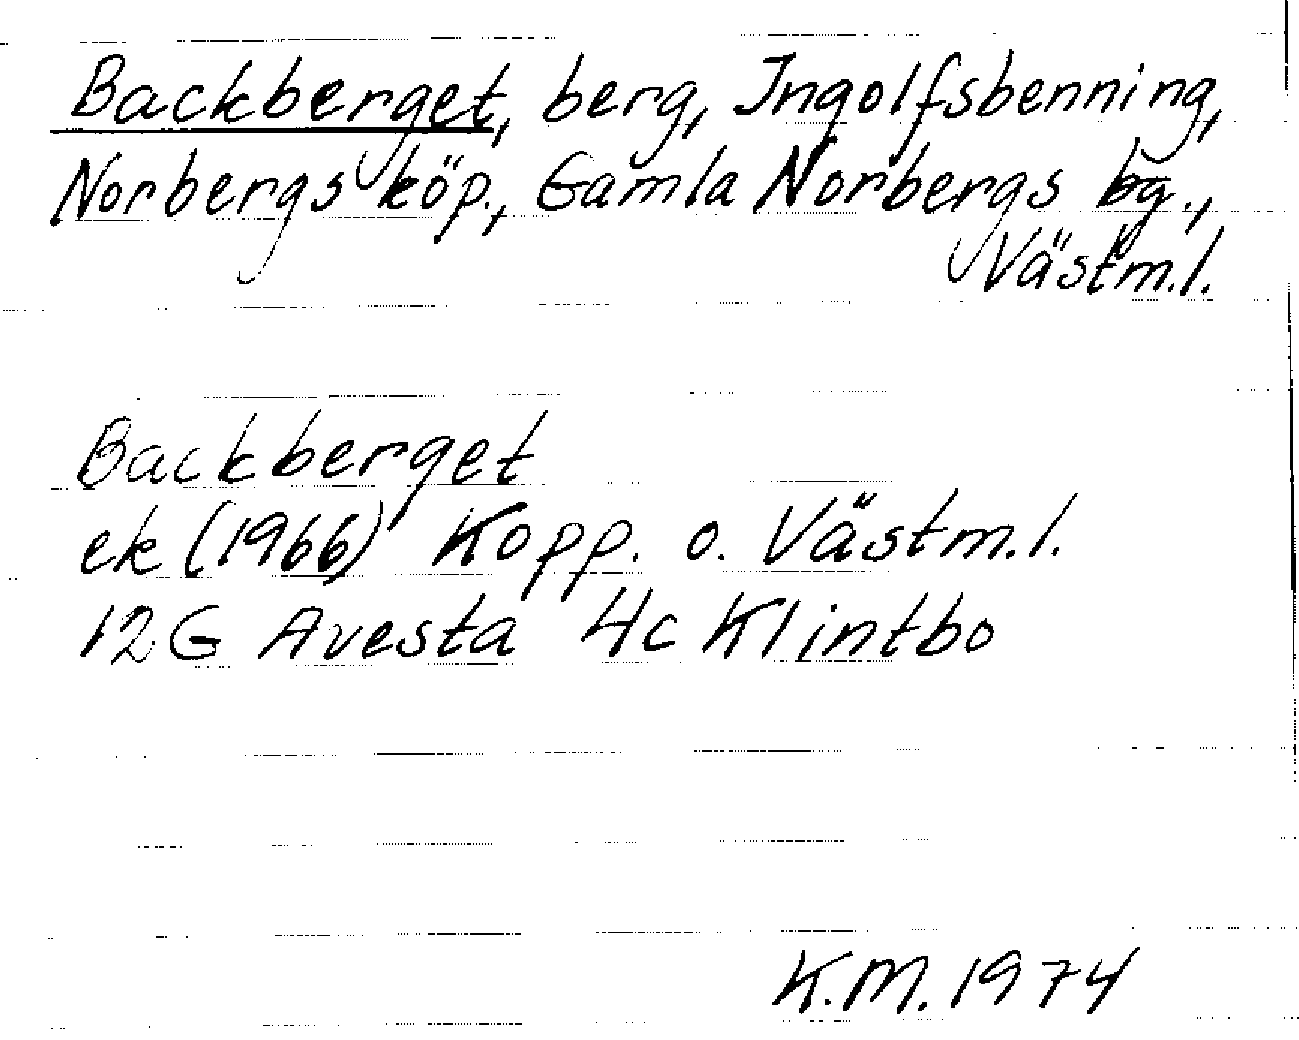 Backberget, berg, Ingolfsbenning,
Norbergs köp., Gamla Norbergs bg.,
Västm.l.
Backberget
ek (1966) Kopp. o. Västm.l.
12G Avesta 4c Klintbo
K.M. 1974